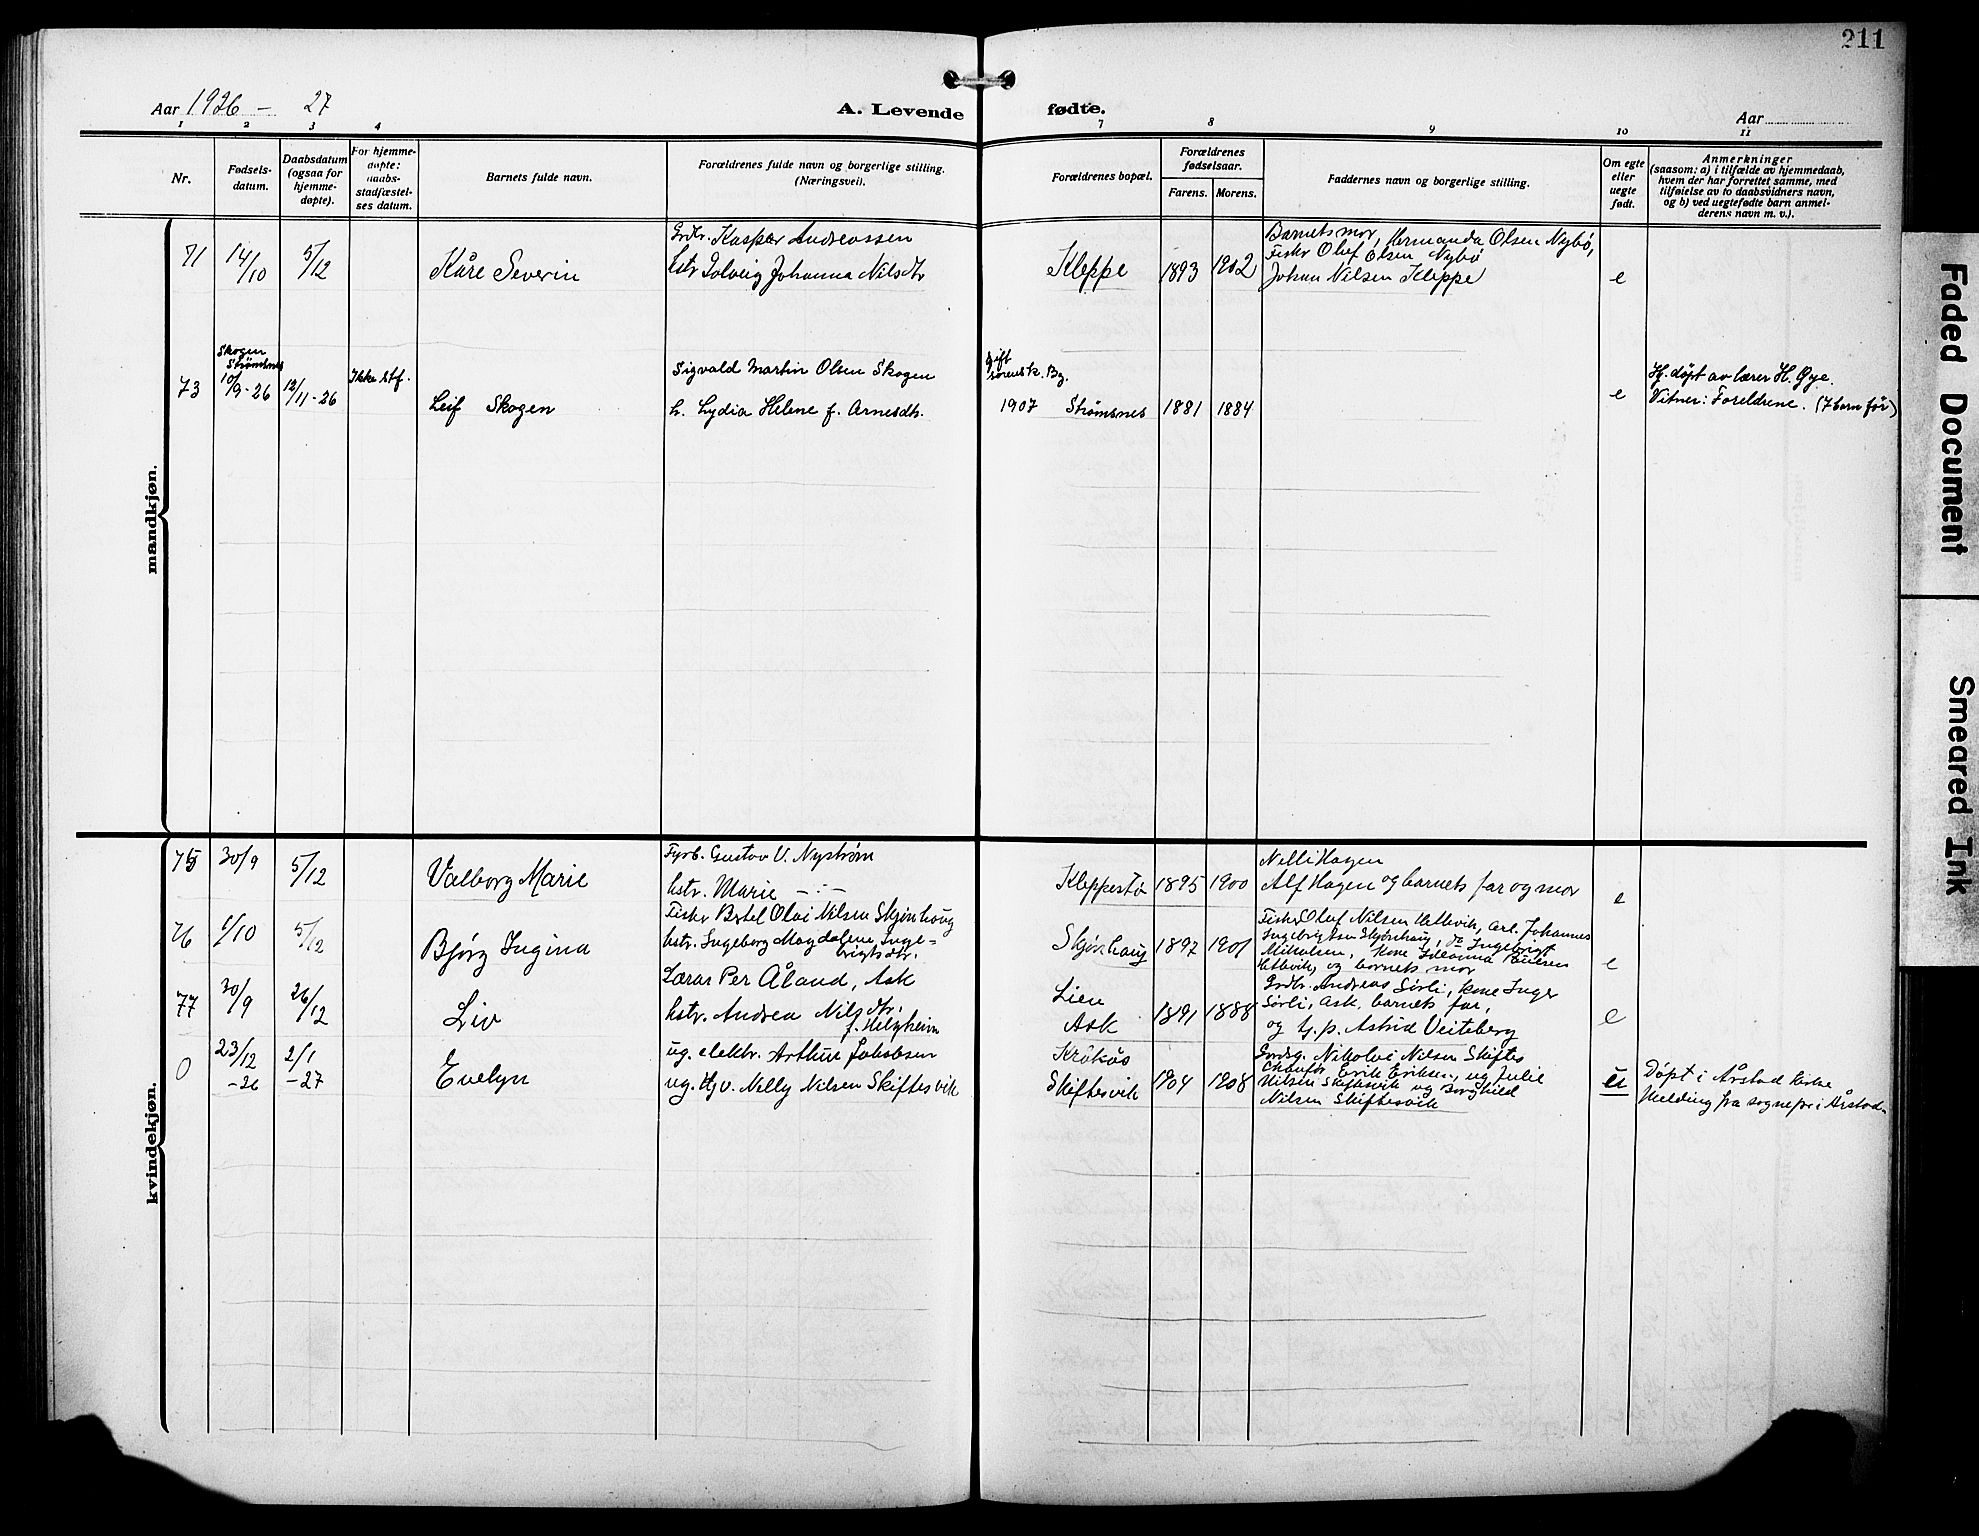 211
Aar 1926 - 27
A. Levende fødte.
Aar
1 2 3 4 7 8 9 10 11
Nr.
Fødsels-
datum.
Daabsdatum
(ogsaa for
hjemme-
døpte).
For hjemme-
døpte:
daabs-
stadfæstel-
ses datum.
Barnets fulde navn.
Forældrenes fulde navn og borgerlige stilling.
(Næringsvei).
Forældrenes bopæl.
Forældrenes
fødselsaar.
Farens. Morens.
Faddernes navn og borgerlige stilling.
Om egte
eller
uegte
født.
Anmerkninger
(saasom: a) i tilfælde av hjemmedaab,
hvem der har forrettet samme, med
tilføielse av to daabsvidners navn,
og b) ved uegtefødte barn anmel-
derens navn m. v.).
mandkjøn.
71 14/10 5/12 Kåre Severin
Grdbr. Kasper Andreassen
hstr Solveig Johanna Nilsdtr
Kleppe 1893 1902
Barnets mor, Hermanda Olsen Nybø,
Fisker Oluf Olsen Nybø
Johan Nilsen Kleppe
e
73
Skogen
Strømsnes
10/9-26 12/11-26 Ikke stf.
Leif Skogen
Sigvald Martin Olsen Skogen
h. Lydia Helene f. Arnesdtr.
gift
sorensk. By.
1907 Strømsnes 1881 1884
e
Hj. døpt av lærer H. Øye.
Vitner: Foreldrene. (7 barn før)
kvindekjøn.
75 30/9 5/12 Valborg Marie
Fyrb. Gustav V. Nystrøm
hstr. Marie -:-
Kleppestø 1895 1900
Nelli Hagen
Alf Hagen og barnets far og mor
e
76 1/10 5/12 Bjørg Ingina
Fisker Bertel Olai Nilsen Skjønhaug
hstr. Ingeborg Magdalene Inge-
brigtsdtr.
Skjønhaug 1897 1901
Fisker Oluf Nilsen Hetlevik, arb. Johannes
Ingebrigtsen Skjønhaug, do Ingebrigt
Mikalsen, kone
Hetlevik, og barnets mor
e
77 30/9 26/12 Liv
Lærar Per Åland, Ask
hstr. Andrea Nilsdtr.
f. Helgheim
Lien
Ask 1891 1888
Grdbr. Andreas Sørli, kone Inger
Sørli, Ask. barnets far,
og tj.p. Astrid Veiteberg
e
0 23/12 -26 2/1 -27 Evelyn
ug. elektr. Arthur Jakobsen
ug. Hjv. Nelly Nilsen Skiftesvik
Kråkås
Skiftesvik 1904 1908
Gardsg. Nikolai Nilsen Skiftes
Chaufør Erik Eriksen, ug Julie
Nilsen Skiftesvik og Borghild
Nilsen Skiftesvik
u
Døpt i Årstad kirke
Melding fra sognepr i Årstad.
Faded Document
Smeared Ink